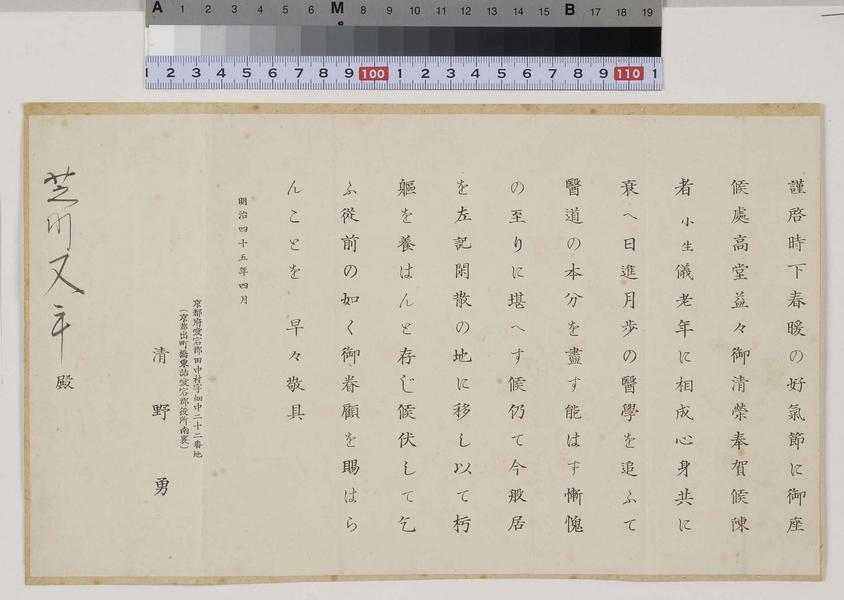 謹啓時下春暖の好氣節に御座
候處高堂益々御淸榮奉賀候陳
者小生儀老年に相成心身共に
衰へ日進月歩の醫學を追ふて
醫道の本分を盡す能はす慚愧
の至りに堪へす候仍て今般居
を左記閑散の地に移し以て朽
軀を養はんと存じ候伏して乞
ふ從前の如く御眷顧を賜はら
んことを 早々敬具
明治四十五年四月
京都府愛宕郡田中村字畑中二十二番地
(京都出町橋東詰愛宕郡役所南裏)
淸野勇
芝川又平殿
A 1 2 3 4 5 6 M 8 9 10 11 12 13 14 15 B 17 18 19
1 2 3 4 5 6 7 8 9 100 1 2 3 4 5 6 7 8 9 110 1